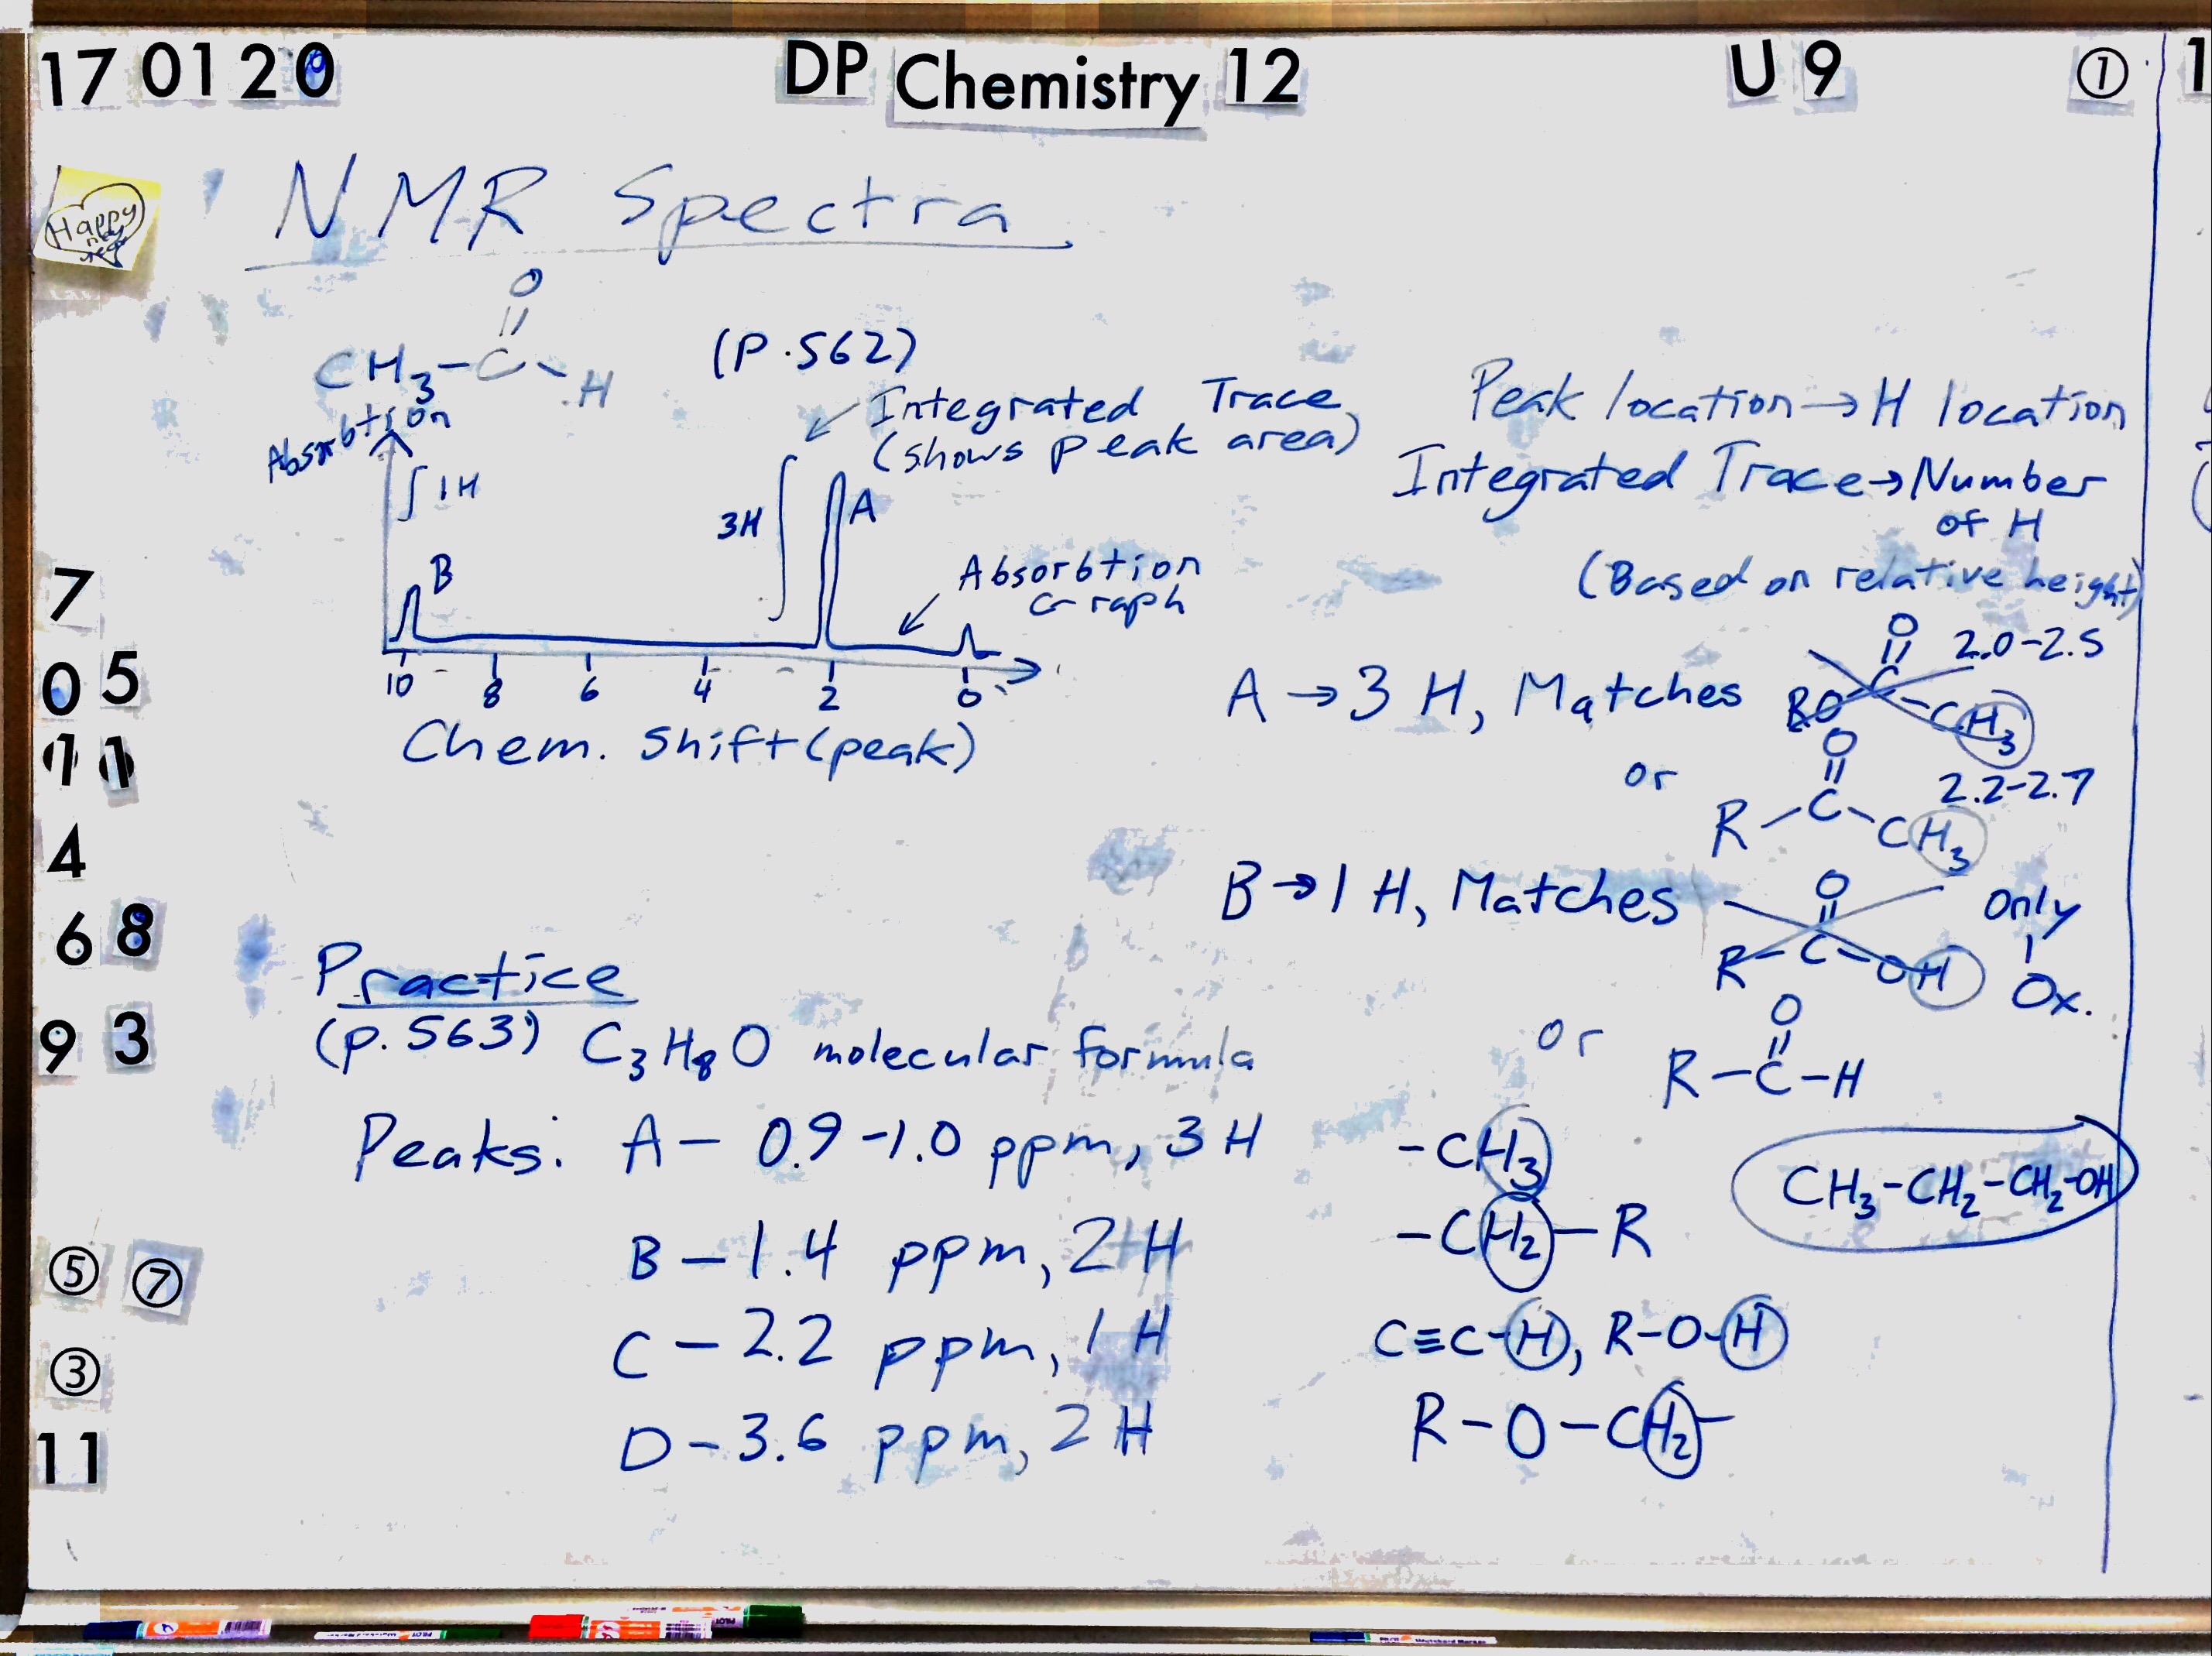 17 01 20 DP Chemistry 12 U 9 ① 1
Happy
new
year
NMR Spectra
O
||
CH₃-C-H
(P.562)
Absorbtion
∫ 1H
Integrated Trace
(shows peak area)
3H
A
B
Absorbtion
Graph
10 8 6 4 2 0
Chem. shift (peak)
Peak location → H location
Integrated Trace → Number
of H
(Based on relative height)
A → 3 H, Matches
O
||
RO-C-CH₃
2.0-2.5
or
O
||
R-C-CH₃
2.2-2.7
B → 1 H, Matches
O
||
R-C-OH
Only
1
Ox.
or
O
||
R-C-H
Practice
(p.563) C₃H₈O molecular formula
Peaks: A - 0.9-1.0 ppm, 3 H -CH₃
B - 1.4 ppm, 2 H -CH₂-R
C - 2.2 ppm, 1 H C≡C-H, R-O-H
D - 3.6 ppm, 2 H R-O-CH₂-
CH₃-CH₂-CH₂-OH
7
0 5
1 1
4
6 8
9 3
⑤ ⑦
③
11
PILOT